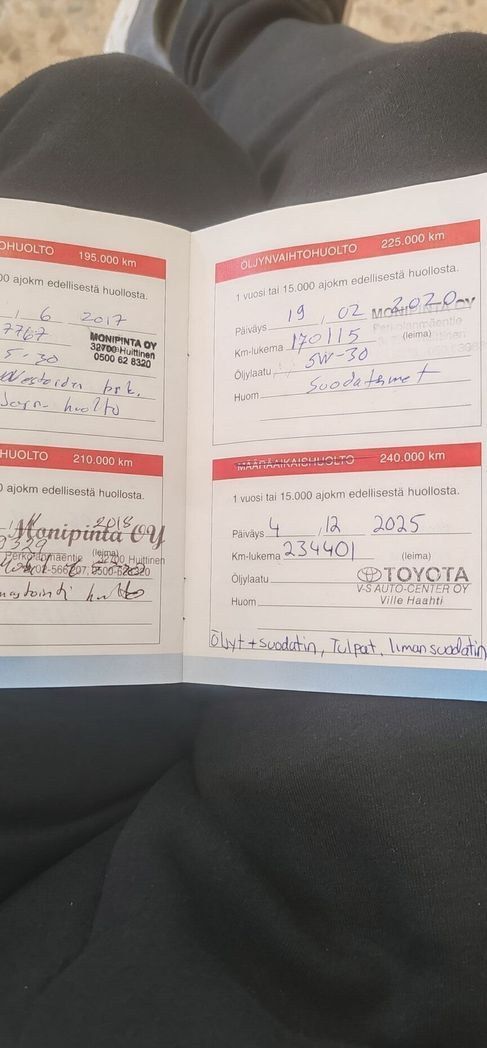 OHUOLTO 195.000 km
00 ajokm edellisestä huollosta.
6 2017
7767
5-30
MONIPINTA OY
32700 Huittinen
0500 62 8320
huolto
HUOLTO 210.000 km
0 ajokm edellisestä huollosta.
2018
Monipinta OY
Perkolanmaentie 32700 Huittinen
(leima)
huolto
ÖLJYNVAIHTOHUOLTO 225.000 km
1 vuosi tai 15.000 ajokm edellisestä huollosta.
Päiväys 19 , 02 2020
MONIPINTA OY
Perkolanmaentie
Km-lukema 170115 (leima)
Öljylaatu 5W-30
Huom Suodattimet
MÄÄRÄAIKAISHUOLTO 240.000 km
1 vuosi tai 15.000 ajokm edellisestä huollosta.
Päiväys 4 , 12 2025
Km-lukema 234401 (leima)
Öljylaatu
TOYOTA
V-S AUTO-CENTER OY
Huom
Ville Haahti
Öljyt + suodatin, Tulpat, Ilmansuodatin